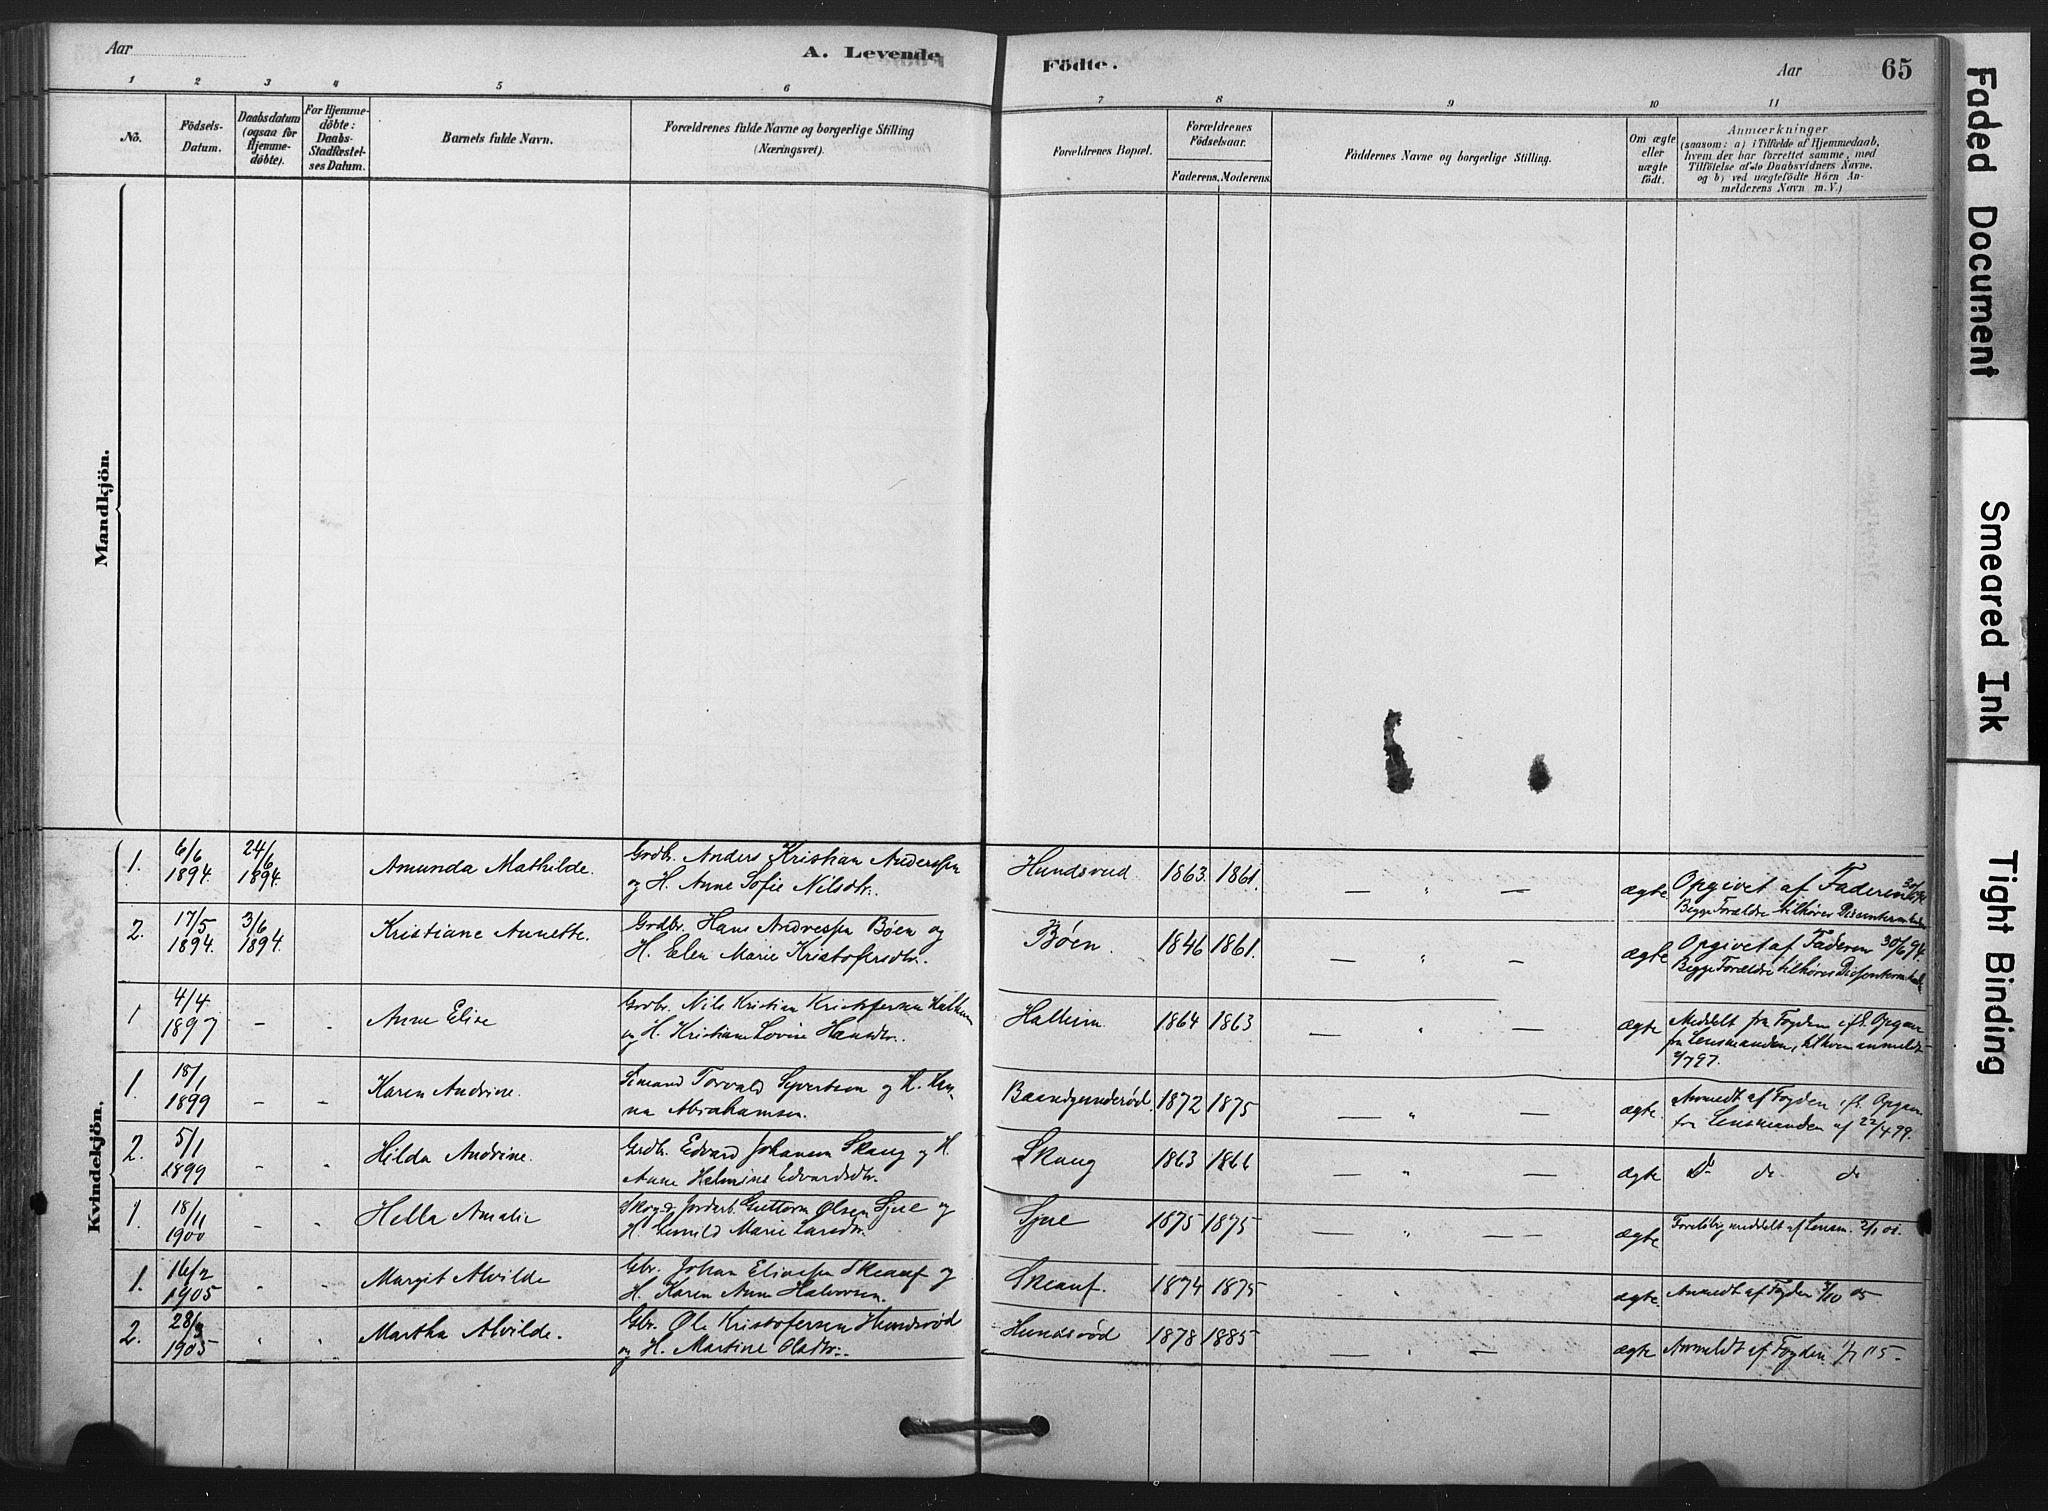 Aar
A. Levende
Födte.
Aar
65
1 2 3 4 5 6 7 8 9 10 11
No.
Födsels-
Datum.
Daabsdatum
(ogsaa for
Hjemme-
döbte).
For Hjemme-
döbte:
Daabs-
Stadfæstel-
ses Datum.
Barnets fulde Navn.
Forældrenes fulde Navne og borgerlige Stilling
(Næringsvei).
Forældrenes Bopæl.
Forældrenes
Födselsaar.
Faderens. Moderens.
Faddernes Navne og borgerlige Stilling.
Om ægte
eller
uægte
födt.
Anmærkninger
(saasom: a) i Tilfælde af Hjemmedaab,
hvem der har forrettet samme, med
Tilföielse af to Daabsvidners Navne,
og b) ved uægtefödte Börn An-
melderens Navn m. V.)
Mandkjön.
Kvindekjön.
1. 6/6 1894. 24/6 1894. Amunda Mathilde.
Grdbr. Anders Kristian Anderssen
og H. Anne Sofie Nilsdtr.
Hundsrud 1863. 1861. — " — ægte
Opgivet af Faderen 30/6 94
Begge Forældre tilhører
2. 17/5 1894. 3/6 1894. Kristiane Annette.
Grdbr. Hans Andressen Bøen og
H. Elen Marie Kristofersdtr.
Bøen. 1846 1861. — " — ægte
Opgivet af Faderen 30/6 94.
Begge Forældre tilhører
1 4/4 1897 - - Anne Elise
Grdbr. Nils Kristian Kristofersen
og H. Kristiane Lovise Hansdtr.
1864 1863 — " — ægte
Meddelt fra Fogden efter Opgave
fra Lensmanden, til hvem anmeldt
1. 18/1 1899 - - Karen Andrine.
Torvald Syvertsen og H.
Abrahamsen.
1872 1875 — " — ægte.
Anmeldt af Fogden eft. Opgave
fra Lensmanden af 22/4 99.
2. 5/1 1899 - - Hilda Andrine.
Grdbr. Edvard Johansen Skaug og H.
Anne Helmine Edvardsdtr.
Skaug 1863 1866 — " — ægte
Do do do
1. 18/11 1900 - - Hella Amalie
Guttorm Olsen og
H. Marie Larsdtr.
1875 1875 — " — — ægte
meddelt af Lensm.
1. 16/2 1905 - - Margit Alvilde
Gbr. Johan og
H. Karen Anne Halvorsen.
1874 1875 ægte.
Anmeldt af Fogden 3/10 05
2. 28/3 1905 Martha Alvilde.
Gbr. Ole Kristofersen Hundsrød
og H. Martine Olsdtr.
Hundsrød 1878 1885 — " — ægte
Anmeldt af Fogden
Faded Document
Smeared Ink
Tight Binding